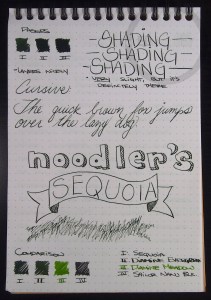 SHADING
SHADING
SHADING
I II III
VERY SLIGHT, BUT IT'S
DEFINITELY THERE
Cursive
The quick brown fox jumps
over the lazy dog.
noodler's
SEQUOIA
COMPARISON
I II III IV
I. SEQUOIA
II. DIAMINE
III. DIAMINE MEADOW
IV. SAILOR NANO BLK